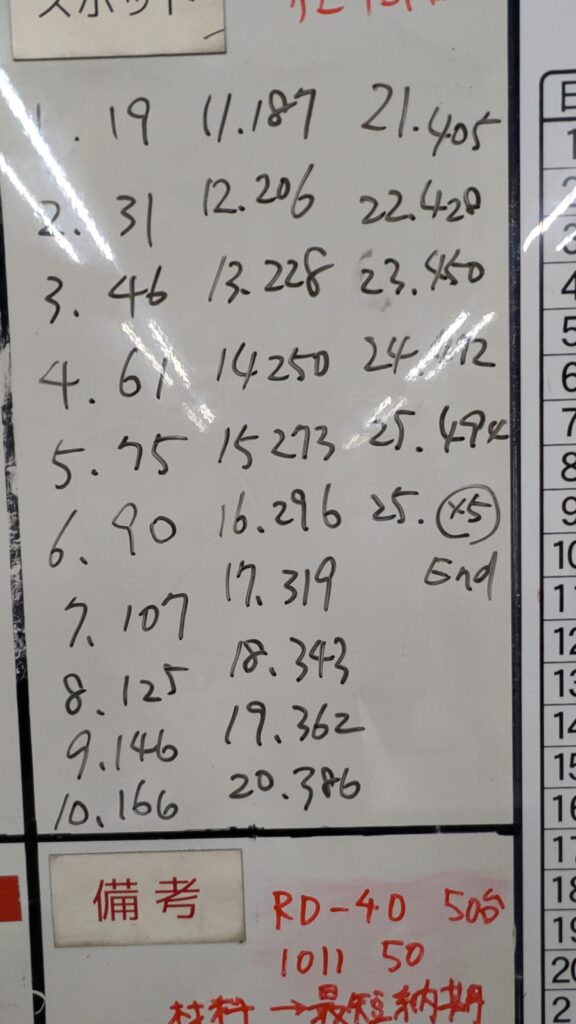 スポット
1. 19
2. 31
3. 46
4. 61
5. 75
6. 90
7. 107
8. 125
9. 146
10. 166
11. 187
12. 206
13. 228
14 250
15 273
16. 296
17. 319
18. 343
19. 362
20. 386
21. 405
22. 428
23. 450
24. 472
25. 494
25. ×5
End
備考
RD-40 50台
1011 50
材料→最短納期
日
1
2
3
4
5
6
7
8
9
10
11
12
13
14
15
16
17
18
19
20